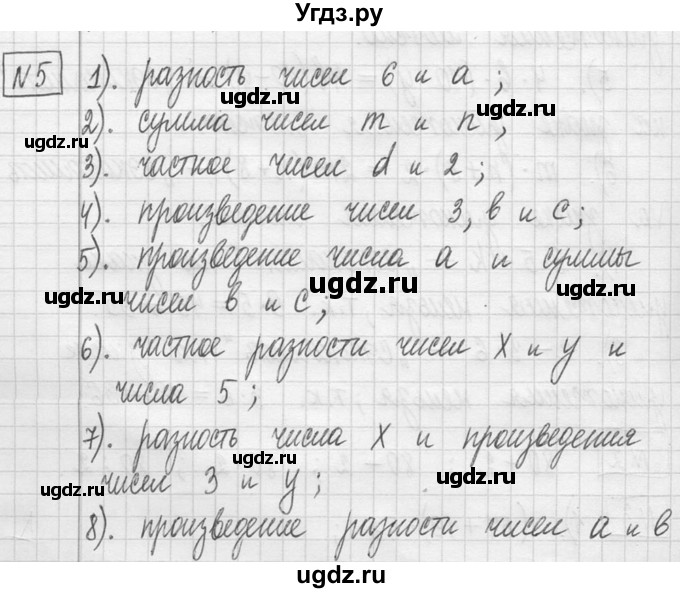 Угдз.ру
№5 1). разность чисел 6 и a;
ugdz.ru ugdz.ru
2). сумма чисел m и n;
ugdz.ru ugdz.ru
3). частное чисел d и 2;
4). произведение чисел 3, в и с;
5). произведение числа a и суммы
ugdz.ru ugdz.ru
чисел в и с;
6). частное разности чисел x и y и
числа 5;
7). разность числа x и произведения
ugdz.ru ugdz.ru
чисел 3 и y;
8). произведение разности чисел a и в
ugdz.ru
ugdz.ru